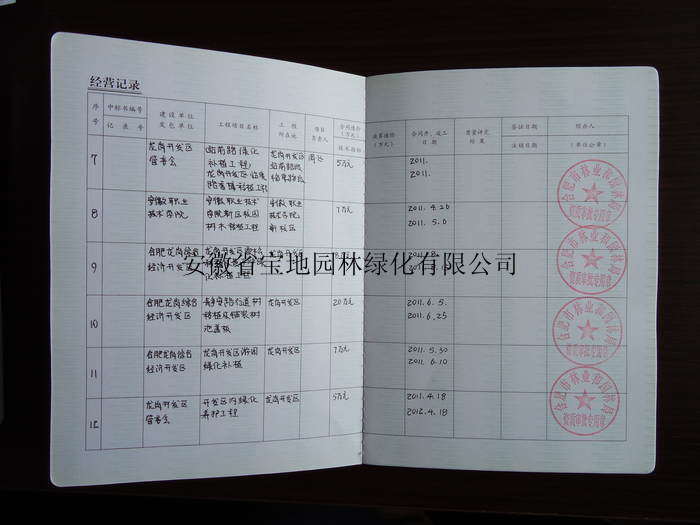 经营记录
序号 中标书编号 建设单位 工程项目名称 工程所在地 项目负责人 合同造价(万元) 决算造价(万元) 合同开、竣工日期 质量评定结果 签证日期 经办人
记录号 发包单位 技术指标 注核日期 (单位公章)
7 龙岗开发区管委会 站前路绿化补植工程 龙岗开发区 5万元 2011.
2011.
8 安徽职业技术学院 安徽职业技术学院新区校园树木移植工程 安徽职业技术学院新校区 7万元 2011.4.20
2011.5.0
9 合肥龙岗综合经济开发区
安徽省宝地园林绿化有限公司
10 合肥龙岗综合经济开发区 龙岗开发区 20万元 2011.6.5.
2011.6.25
11 合肥龙岗综合经济开发区 龙岗开发区游园绿化补植 龙岗开发区 7万元 2011.5.30
2011.6.10
12 龙岗开发区管委会 开发区内绿化养护工程 龙岗开发区 5万元 2011.4.18
2012.4.18
合肥市林业和园林局
资质审批专用章
合肥市林业和园林局
资质审批专用章
合肥市林业和园林局
资质审批专用章
合肥市林业和园林局
资质审批专用章